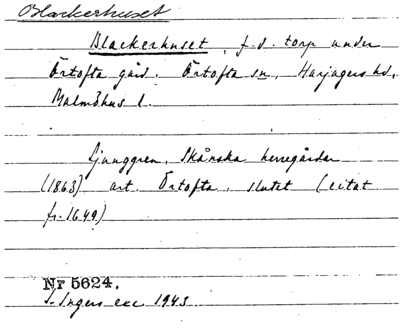 Blackerhuset
Blackerhuset, f.d. torp under
Örtofta gård. Örtofta sn, Harjagers hd,
Malmöhus l.
Ljunggren, Skånska herregårdar
(1863) art. Örtofta, slutet (citat
fr. 1649)
Nr 5624.
I. Ingers exc 1943